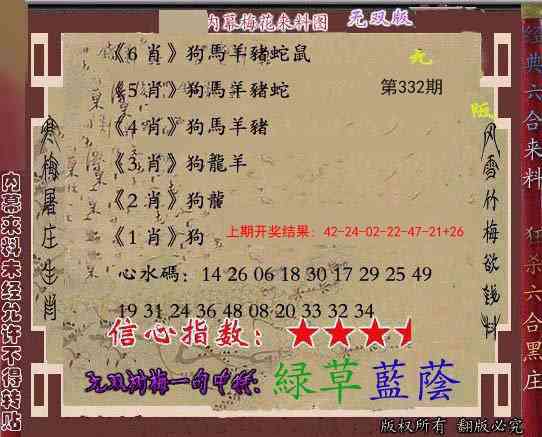 内幕梅花来料图 无双版
《6 肖》狗馬羊豬蛇鼠
无
《5 肖》狗馮羊豬蛇
第332期
版
《4 肖》狗馬羊豬
《3 肖》狗龍羊
《2 肖》狗龍
《1 肖》狗
上期开奖结果：42-24-02-22-47-21+26
心水碼：14 26 06 18 30 17 29 25 49
19 31 24 36 48 08 20 33 32 34
信心指数：★★★
无双鸿梅一句中特：緑草藍蔭
寒梅屠庄生肖
风雪竹梅欲钱料
内幕来料未经允许不得转贴
经典六合来料 狂杀六合黑庄
版权所有 翻版必究